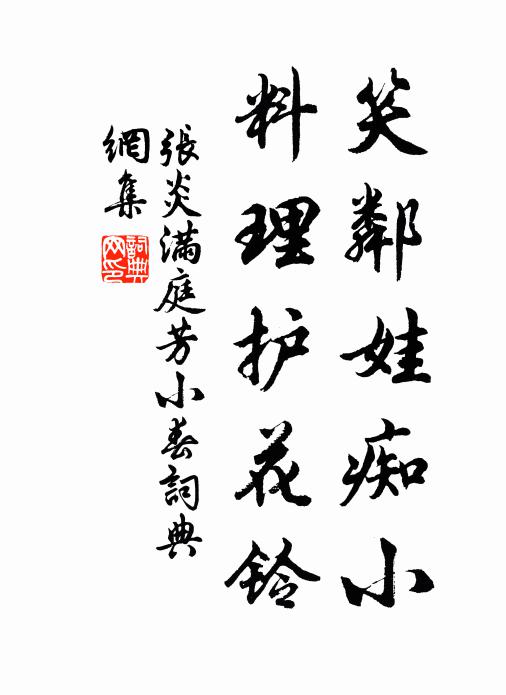 笑鄰娃痴小
料理护花鈴
張炎滿庭芳小春詞典
網集
詞典
网印